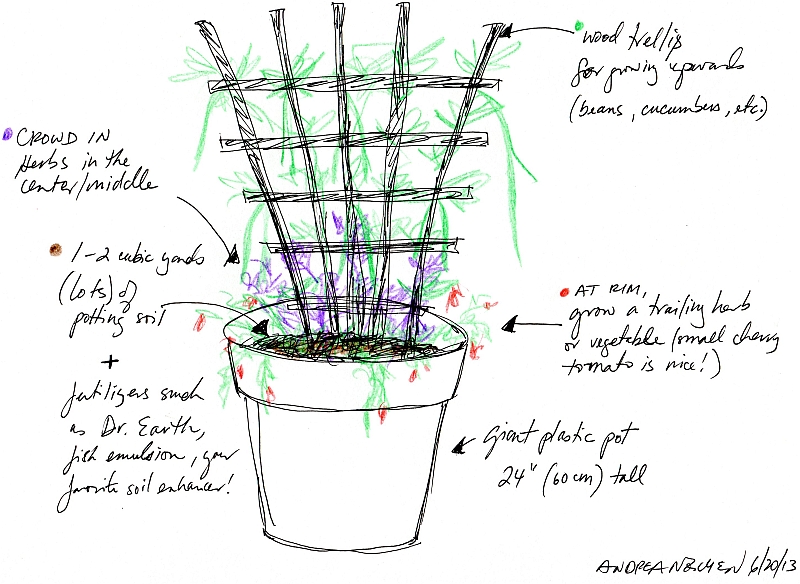 wood trellis
for growing upwards
(beans, cucumbers, etc.)
CROWD IN
Herbs in the
center/middle
1-2 cubic yards
(lots) of
potting soil
+
fertilizers such
as Dr. Earth,
fish emulsion, your
favorite soil enhancer!
AT RIM,
grow a trailing herb
or vegetable (small cherry
tomato is nice!)
Giant plastic pot
24" (60cm) tall
6/20/13